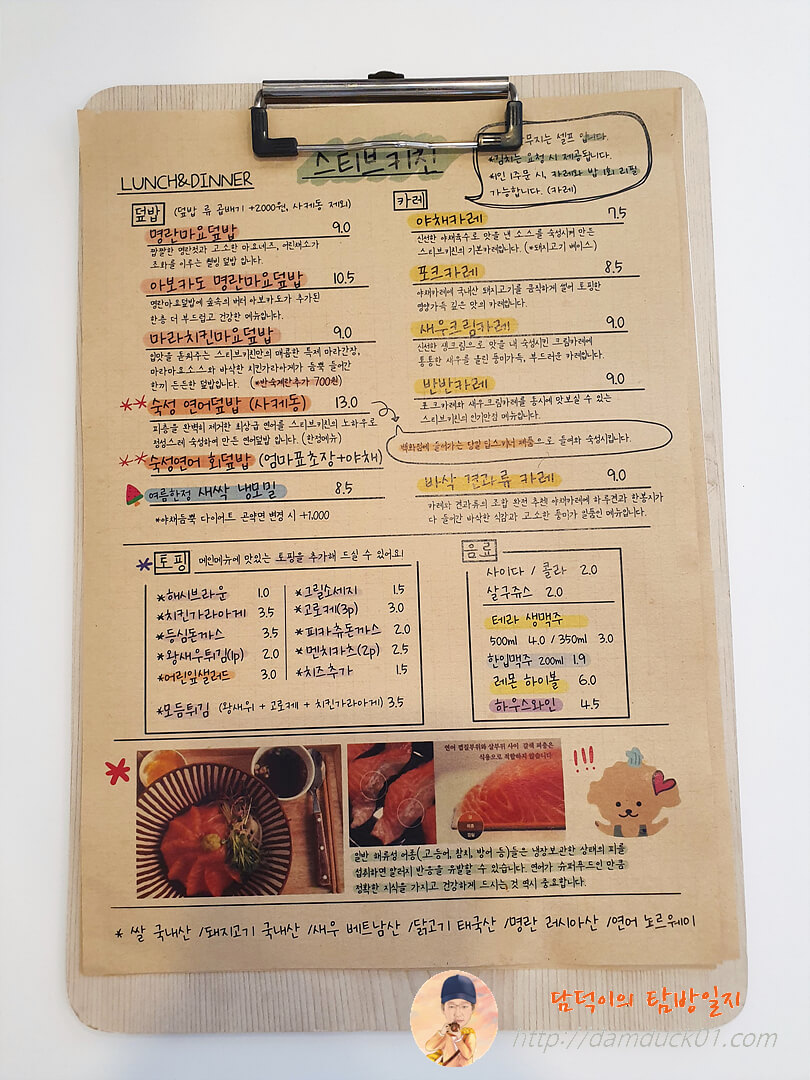 스티브키친
LUNCH&DINNER
무지는 셀프 입니다.
*김치는 요청 시 제공됩니다.
*1인 1주문 시, 카레와 밥 1회 리필
가능합니다. (카레)
덮밥 (덮밥 류 곱배기 +2000원, 사케동 제외)
명란마요덮밥 9.0
짭짤한 명란젓과 고소한 마요네즈, 어린채소가
조화를 이루는 웰빙 덮밥 입니다.
아보카도 명란마요덮밥 10.5
명란마요덮밥에 숲속의 버터 아보카도가 추가된
한층 더 부드럽고 건강한 메뉴입니다.
마라치킨마요덮밥 9.0
입맛을 돋워주는 스티브키친만의 매콤한 특제 마라간장,
마라마요소스와 바삭한 치킨가라아게가 듬뿍 들어간
한끼 든든한 덮밥입니다. (*반숙계란추가 700원)
**숙성 연어덮밥 (사케동) 13.0
피층을 완벽히 제거한 최상급 연어를 스티브키친의 노하우로
정성스레 숙성하여 만든 연어덮밥 입니다. (한정메뉴)
**숙성연어 회덮밥 (엄마표초장+야채)
여름한정 새싹 냉모밀 8.5
*야채듬뿍 다이어트 곤약면 변경 시 +1.000
카레
야채카레 7.5
신선한 야채육수로 맛을 낸 소스를 숙성시켜 만든
스티브키친의 기본카레입니다. (*돼지고기 베이스)
포크카레 8.5
야채카레에 국내산 돼지고기를 큼직하게 썰어 토핑한
영양가득 깊은 맛의 카레입니다.
새우크림카레 9.0
신선한 생크림으로 맛을 내 숙성시킨 크림카레에
통통한 새우를 올린 풍미가득, 부드러운 카레입니다.
반반카레 9.0
포크카레와 새우크림카레를 동시에 맛보실 수 있는
스티브키친의 인기만점 메뉴입니다.
백화점에 들어가는 당일 필스키너 제품으로 들여와 숙성시킵니다.
바삭 견과류 카레 9.0
카레와 견과류의 조합 완전 추천! 야채카레에 하루견과 한봉지가
다 들어간 바삭한 식감과 고소한 풍미가 일품인 메뉴입니다.
*토핑 메인메뉴에 맛있는 토핑을 추가해 드실 수 있어요!
*해시브라운 1.0
*치킨가라아게 3.5
*등심돈까스 3.5
*왕새우튀김(1p) 2.0
*어린잎샐러드 3.0
*그릴소세지 1.5
*고로케(3p) 3.0
*피카츄돈까스 2.0
*멘치카츠(2p) 2.5
*치즈추가 1.5
*모듬튀김 (왕새우 + 고로케 + 치킨가라아게) 3.5
음료
사이다 / 콜라 2.0
살구쥬스 2.0
테라 생맥주
500ml 4.0 / 350ml 3.0
한입맥주 200ml 1.9
레몬 하이볼 6.0
하우스와인 4.5
*
연어 껍질부위와 살부위 사이 갈색 피층은
식용으로 적합하지 않습니다.
!!!
일반 해유성 어종(고등어, 참치, 방어 등)들은 냉장보관한 상태의 피를
섭취하면 알러지 반응을 유발할 수 있습니다. 연어가 슈퍼푸드인 만큼
정확한 지식을 가지고 건강하게 드시는 것 역시 중요합니다.
* 쌀 국내산 /돼지고기 국내산 /새우 베트남산 /닭고기 태국산 /명란 러시아산 /연어 노르웨이
담덕이의 탐방일지
http://damduck01.com